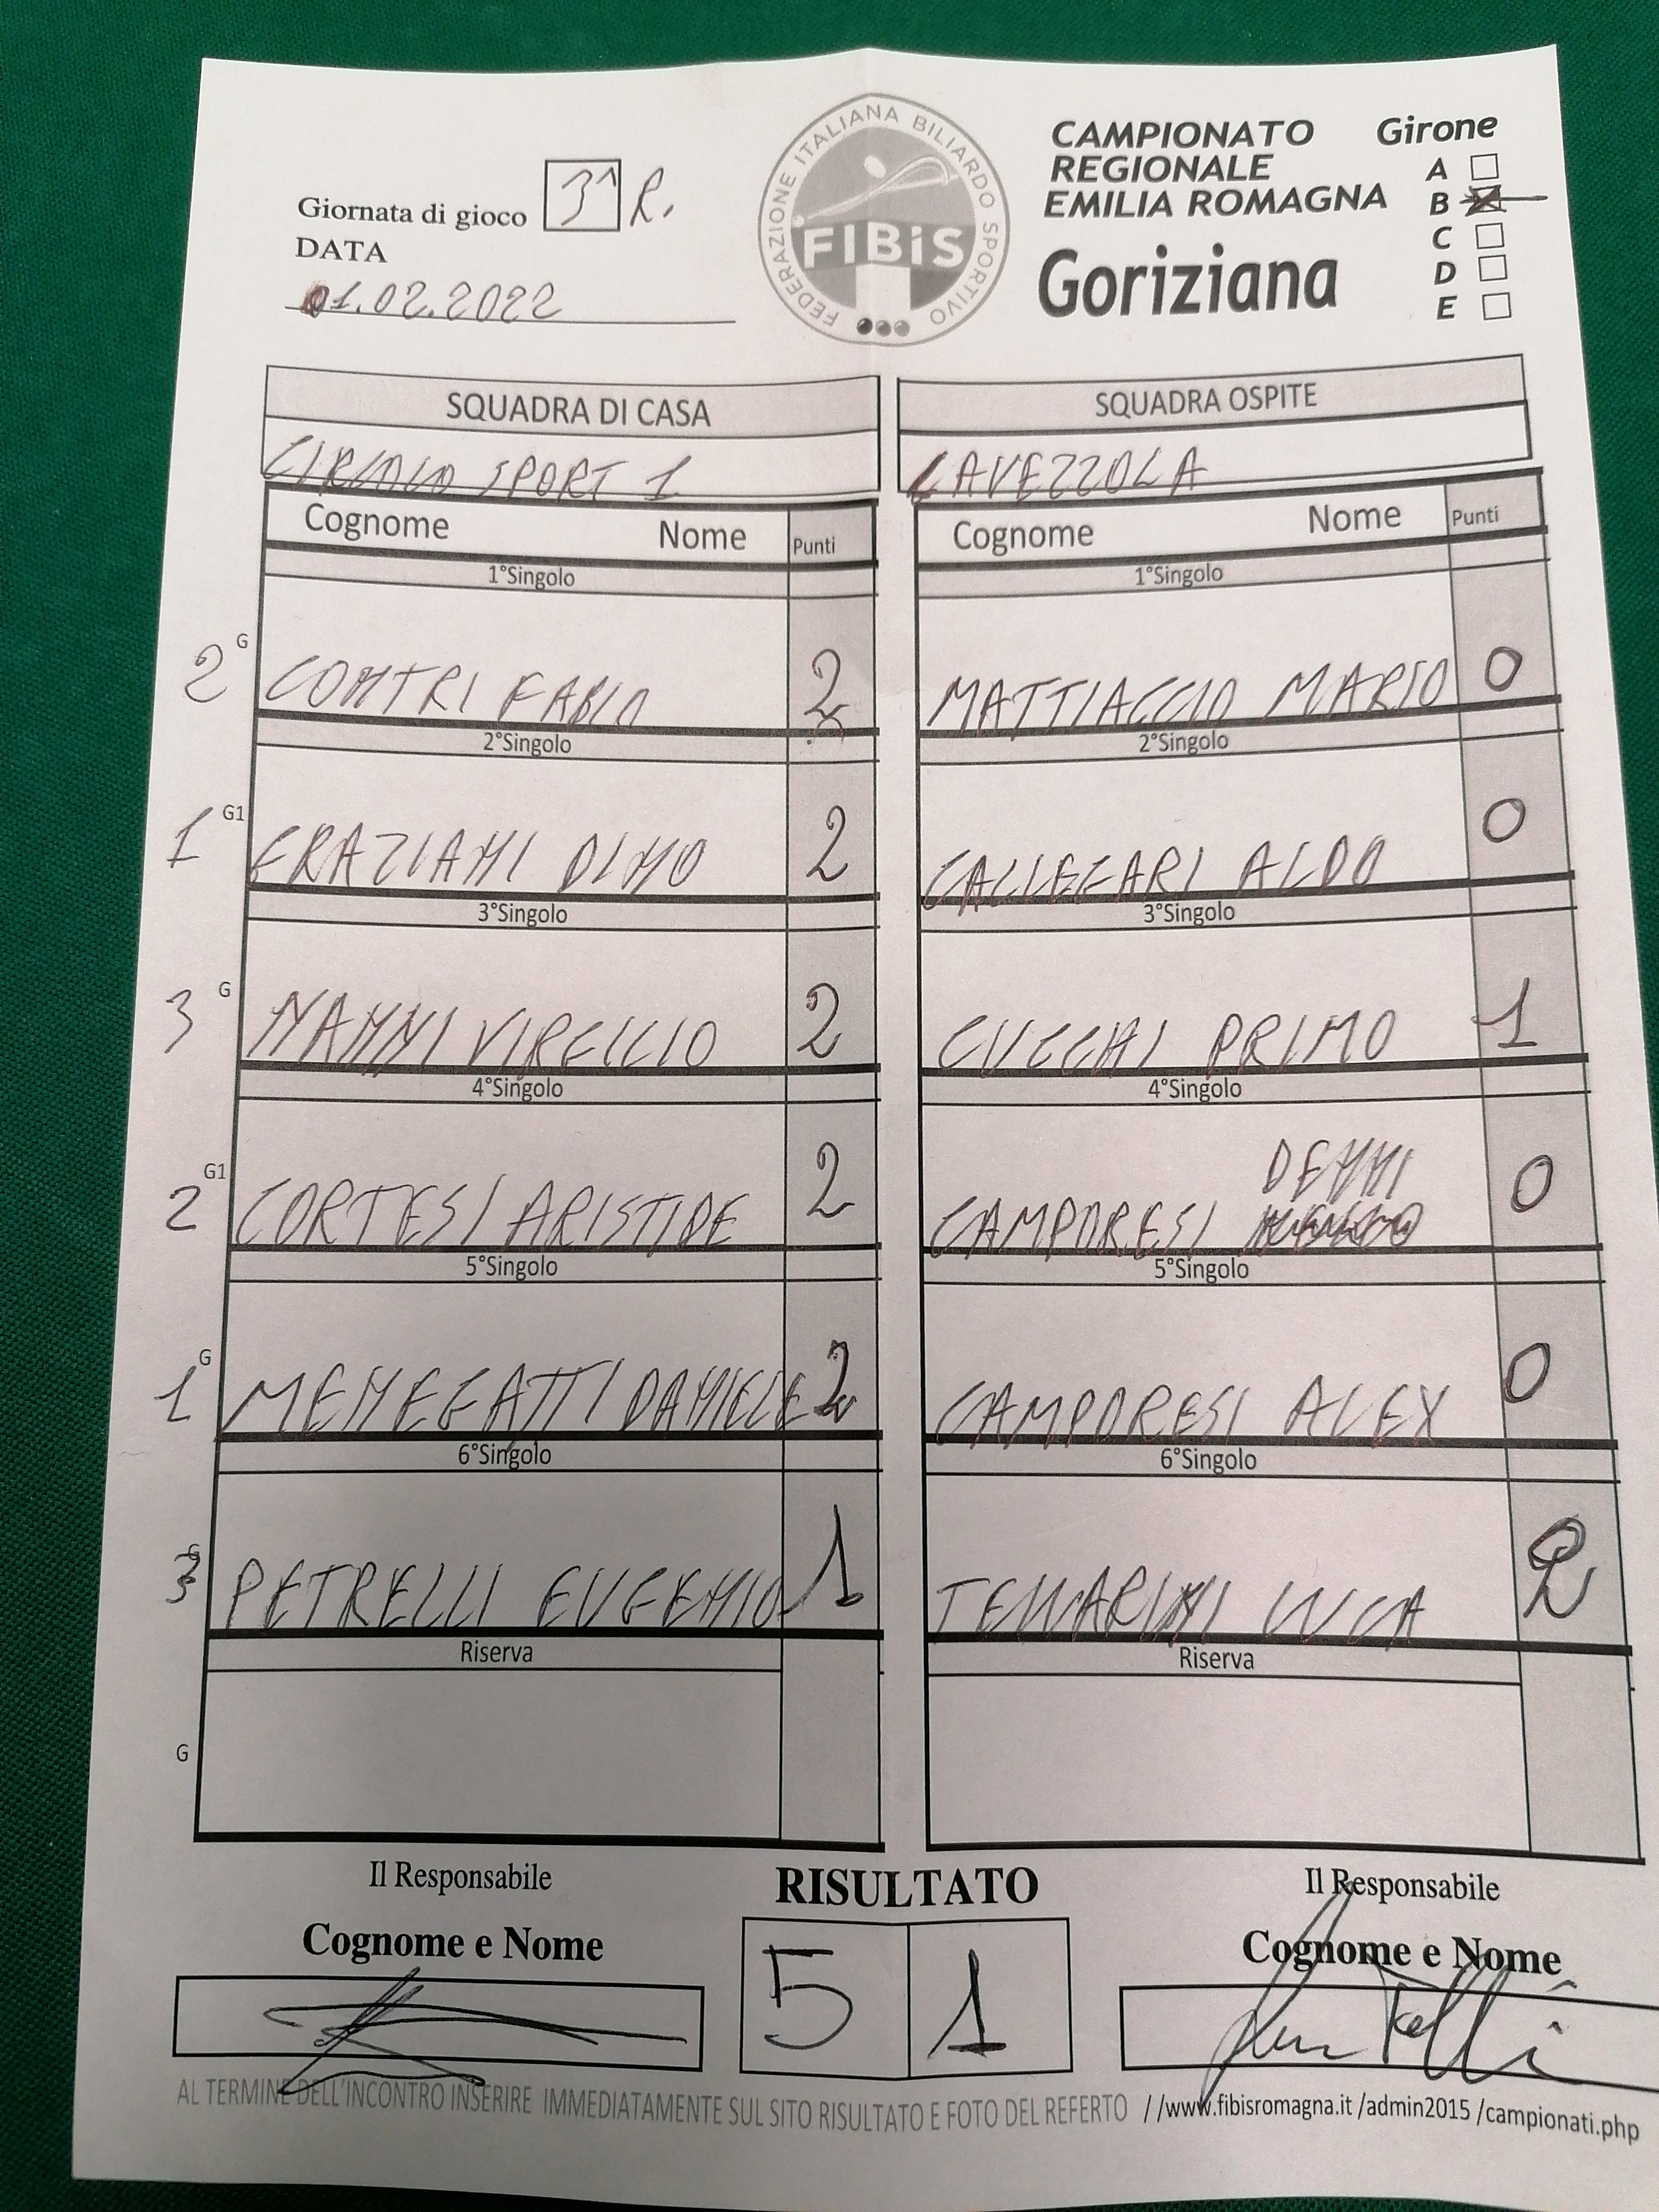 FEDERAZIONE ITALIANA BILIARDO SPORTIVO
FIBiS
CAMPIONATO
REGIONALE
EMILIA ROMAGNA
Goriziana
Girone
A
B
C
D
E
Giornata di gioco 3^ R.
DATA
01.02.2022
SQUADRA DI CASA SQUADRA OSPITE
CIRCOLO SPORT 1 LAVEZZOLA
Cognome Nome Punti Cognome Nome Punti
1°Singolo 1°Singolo
2 G CONTRI FABIO 2 MATTIACCIO MARIO 0
2°Singolo 2°Singolo
1 G1 GRAZIANI DINO 2 CALLEGARI ALDO 0
3°Singolo 3°Singolo
3 G NANNI VIRGILIO 2 CUCCHI PRIMO 1
4°Singolo 4°Singolo
DENNI
2 G1 CORTESI ARISTIDE 2 CAMPORESI 0
5°Singolo 5°Singolo
1 G MENEGATTI DANIELE 2 CAMPORESI ALEX 0
6°Singolo 6°Singolo
3 G PETRELLI EUGENIO 1 LUCA 2
Riserva Riserva
G
Il Responsabile RISULTATO Il Responsabile
Cognome e Nome 5 1 Cognome e Nome
AL TERMINE DELL'INCONTRO INSERIRE IMMEDIATAMENTE SUL SITO RISULTATO E FOTO DEL REFERTO //www.fibisromagna.it /admin2015 /campionati.php